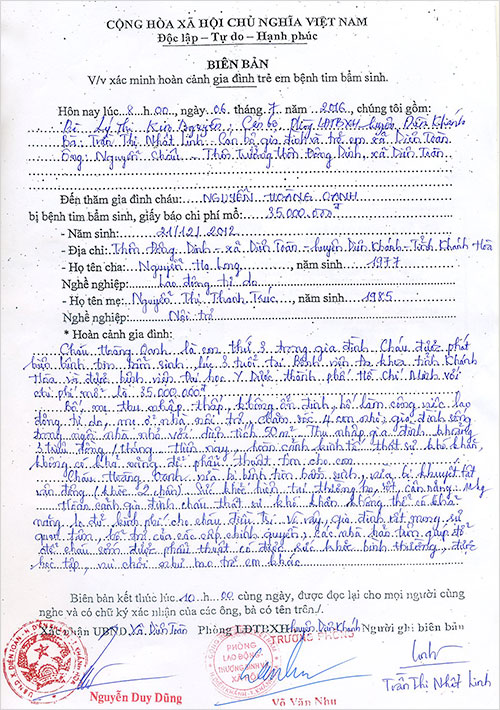 CỘNG HÒA XÃ HỘI CHỦ NGHĨA VIỆT NAM
Độc lập – Tự do – Hạnh phúc
BIÊN BẢN
V/v xác minh hoàn cảnh gia đình trẻ em bệnh tim bẩm sinh.
Hôn nay lúc 8 h 00, ngày 06 tháng 7 năm 2016, chúng tôi gồm:
Bà Lý Thị Kim Nguyên, Cán bộ Phòng LĐTBXH huyện Diên Khánh
Bà: Trần Thị Nhật Linh: Cán bộ gia đình và trẻ em xã Diên Toàn
Ông: Nguyễn Châu - Thôn Trưởng thôn Đông Dinh, xã Diên Toàn
Đến thăm gia đình cháu: NGUYỄN HOÀNG OANH
bị bệnh tim bẩm sinh, giấy báo chi phí mổ: 35.000.000đ
- Năm sinh: 21/12/2012
- Địa chỉ: Thôn Đông Dinh - xã Diên Toàn - huyện Diên Khánh - Tỉnh Khánh Hòa
- Họ tên cha: Nguyễn Hạ Long, năm sinh 1977
Nghề nghiệp: Lao động tự do
- Họ tên mẹ: Nguyễn Thị Thanh Trúc, năm sinh 1985
Nghề nghiệp: Nội trợ
* Hoàn cảnh gia đình:
Cháu Hoàng Oanh là con thứ 3 trong gia đình. Cháu được phát
hiện bệnh tim bẩm sinh lúc 3 tuổi tại Bệnh viện đa khoa tỉnh Khánh
Hòa và được bệnh viện Đại học Y Dược thành phố Hồ Chí Minh với
chi phí mổ là 35.000.000đ
Bố, mẹ thu nhập thấp, không ổn định, bố làm công việc lao
động tự do, mẹ ở nhà nội trợ, chăm sóc 4 con nhỏ, gia đình sống
trong ngôi nhà nhỏ với diện tích 50m². Thu nhập gia đình khoảng
3 triệu đồng/tháng. Hiện nay, hoàn cảnh kinh tế thật sự khó khăn,
không có khả năng để phẫu thuật tim cho con.
Cháu Hoàng Oanh vừa bị bệnh tim bẩm sinh, vừa bị khuyết tật
vận động (khoèo 2 chân). Sức khỏe hiện tại cân nặng 11kg
Hoàn cảnh gia đình cháu thật sự khó khăn không thể có khả
năng lo đủ kinh phí cho cháu điều trị. Vì vậy, gia đình rất mong sự
quan tâm, hỗ trợ của các cấp chính quyền, các nhà hảo tâm giúp đỡ
để cháu sớm được phẫu thuật, có được sức khỏe bình thường, được
học tập, vui chơi như mọi trẻ em khác
Biên bản kết thúc lúc 10 h 00 cùng ngày, được đọc lại cho mọi người cùng
nghe và có chữ ký xác nhận của các ông, bà có tên trên./.
Xác nhận UBND Xã Diên Toàn Phòng LĐTBXH huyện Diên Khánh Người ghi biên bản
TRƯỞNG PHÒNG
PHÒNG
LAO ĐỘNG
THƯƠNG BINH VÀ
XÃ HỘI
Linh
Nguyễn Duy Dũng
Võ Văn Nhu
Trần Thị Nhật Linh